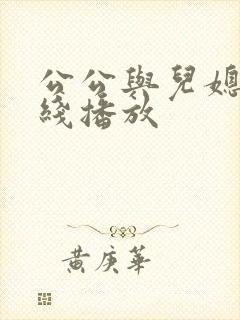 公公與兒媳
綫播放
黃庚華